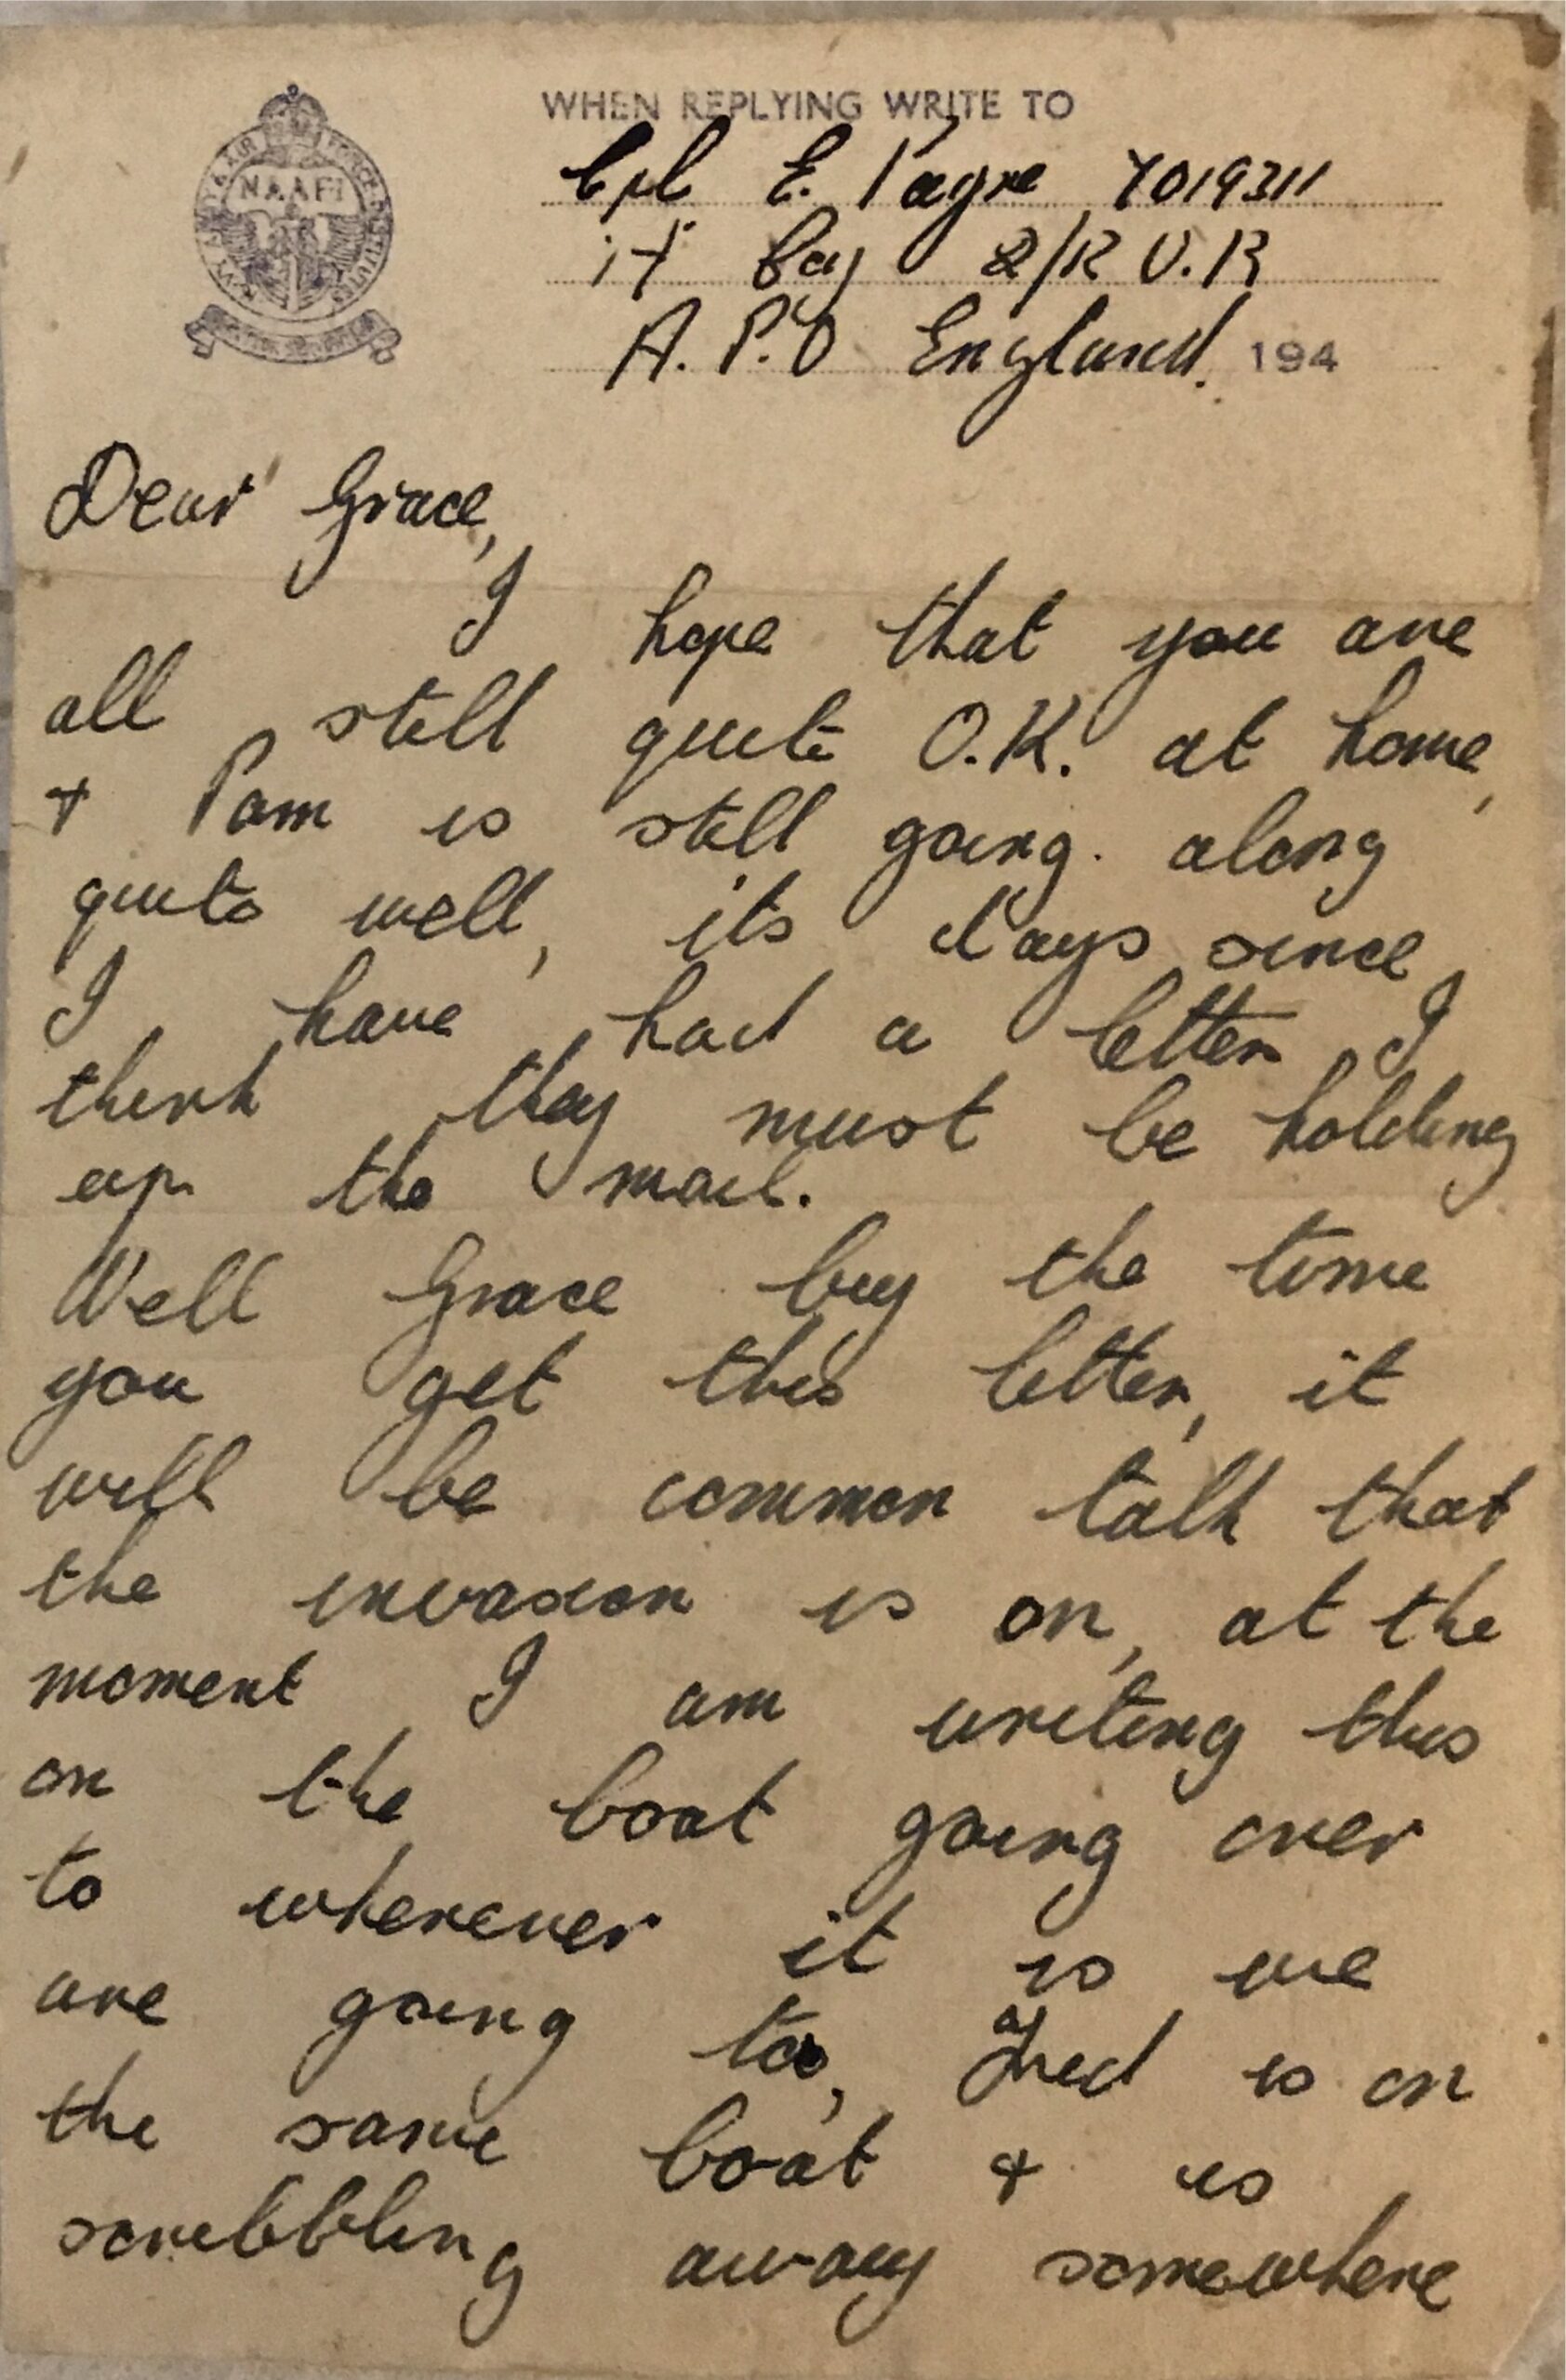 WHEN REPLYING WRITE TO
NAVY, ARMY & AIR FORCE INSTITUTES
NAAFI
Cpl E. Payne 7019311
Coy 2/R U.R
A.P.O England. 194
Dear Grace,
I hope that you are
all still quite O.K. at home,
+ Pam is still going. along
quite well, its days since
I have had a letter I
think they must be holding
up the mail.
Well Grace buy the time
you get this letter, it
will be common talk that
the invasion is on, at the
moment I am writing this
on the boat going over
to wherever it is we
are going to, Fred is on
the same boat + is
scribbling away somewhere